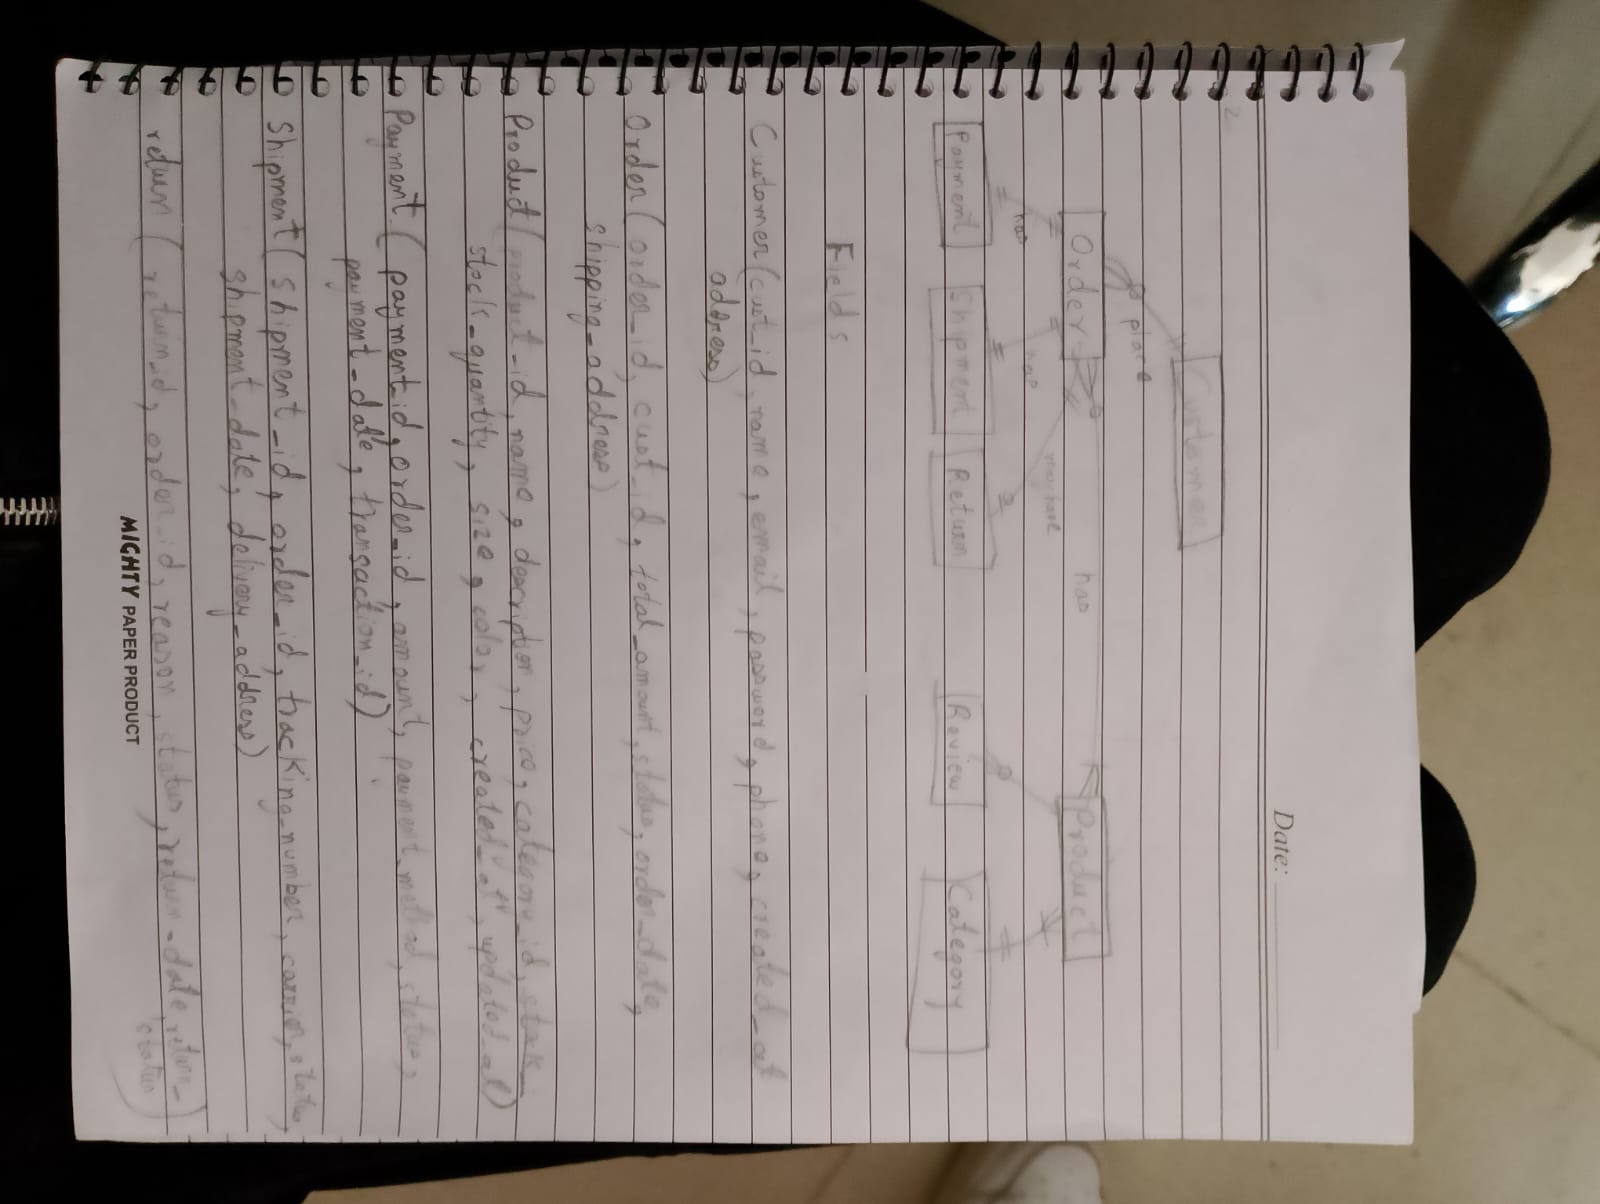 Date:
2
Customer
place
Order
has
Product
may have
has
has
Payment
Shipment
Return
Review
Category
Fields
Customer(cust_id, name, email, password, phone, created_at
address)
Order( order_id, cust_id, total_amount, status, order_date,
shipping_address)
Product( product_id, name, description, price, category_id,
stock_quantity, size, color, created_at, updated_at)
Payment ( payment_id, order_id, amount, payment_method, status,
payment_date, transaction_id)
Shipment( shipment_id, order_id, tracking_number, carrier, status,
shipment_date, delivery_address)
return ( return_id, order_id, reason, status, return_date, return_
status)
MIGHTY PAPER PRODUCT